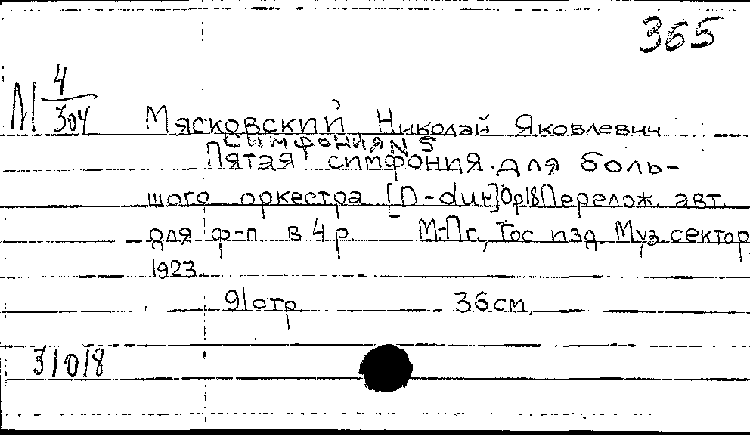 365
М 4/304
Мясковский Николай Яковлевич
Симфония N5
Пятая симфония. для боль-
шого оркестра [D-dur] Op18 Перелож. авт.
для ф-п в 4 р М-Пг., Гос изд Муз. сектор
1923
91 стр 36 см.
31018